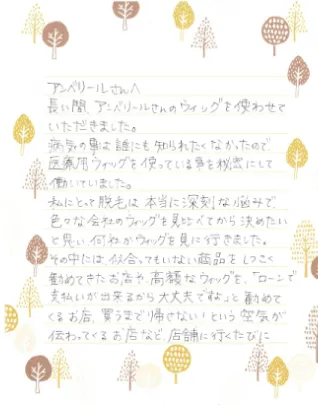 アンベリールさんへ
長い間、アンベリールさんのウィッグを使わせて
いただきました。
病気の事は誰にも知られたくなかったので
医療用ウィッグを使っている事を秘密にして
働いていました。
私にとって脱毛は本当に深刻な悩みで、
色々な会社のウィッグを見比べてから決めたい
と思い何社かウィッグを見に行きました。
その中には、似合ってもいない商品をしつこく
勧めてきたお店や、高額なウィッグを、「ローンで
支払いが出来るから大丈夫ですよ」と勧めて
くるお店、買うまで帰せない!という空気が
伝わってくるお店など、店舗に行くたびに